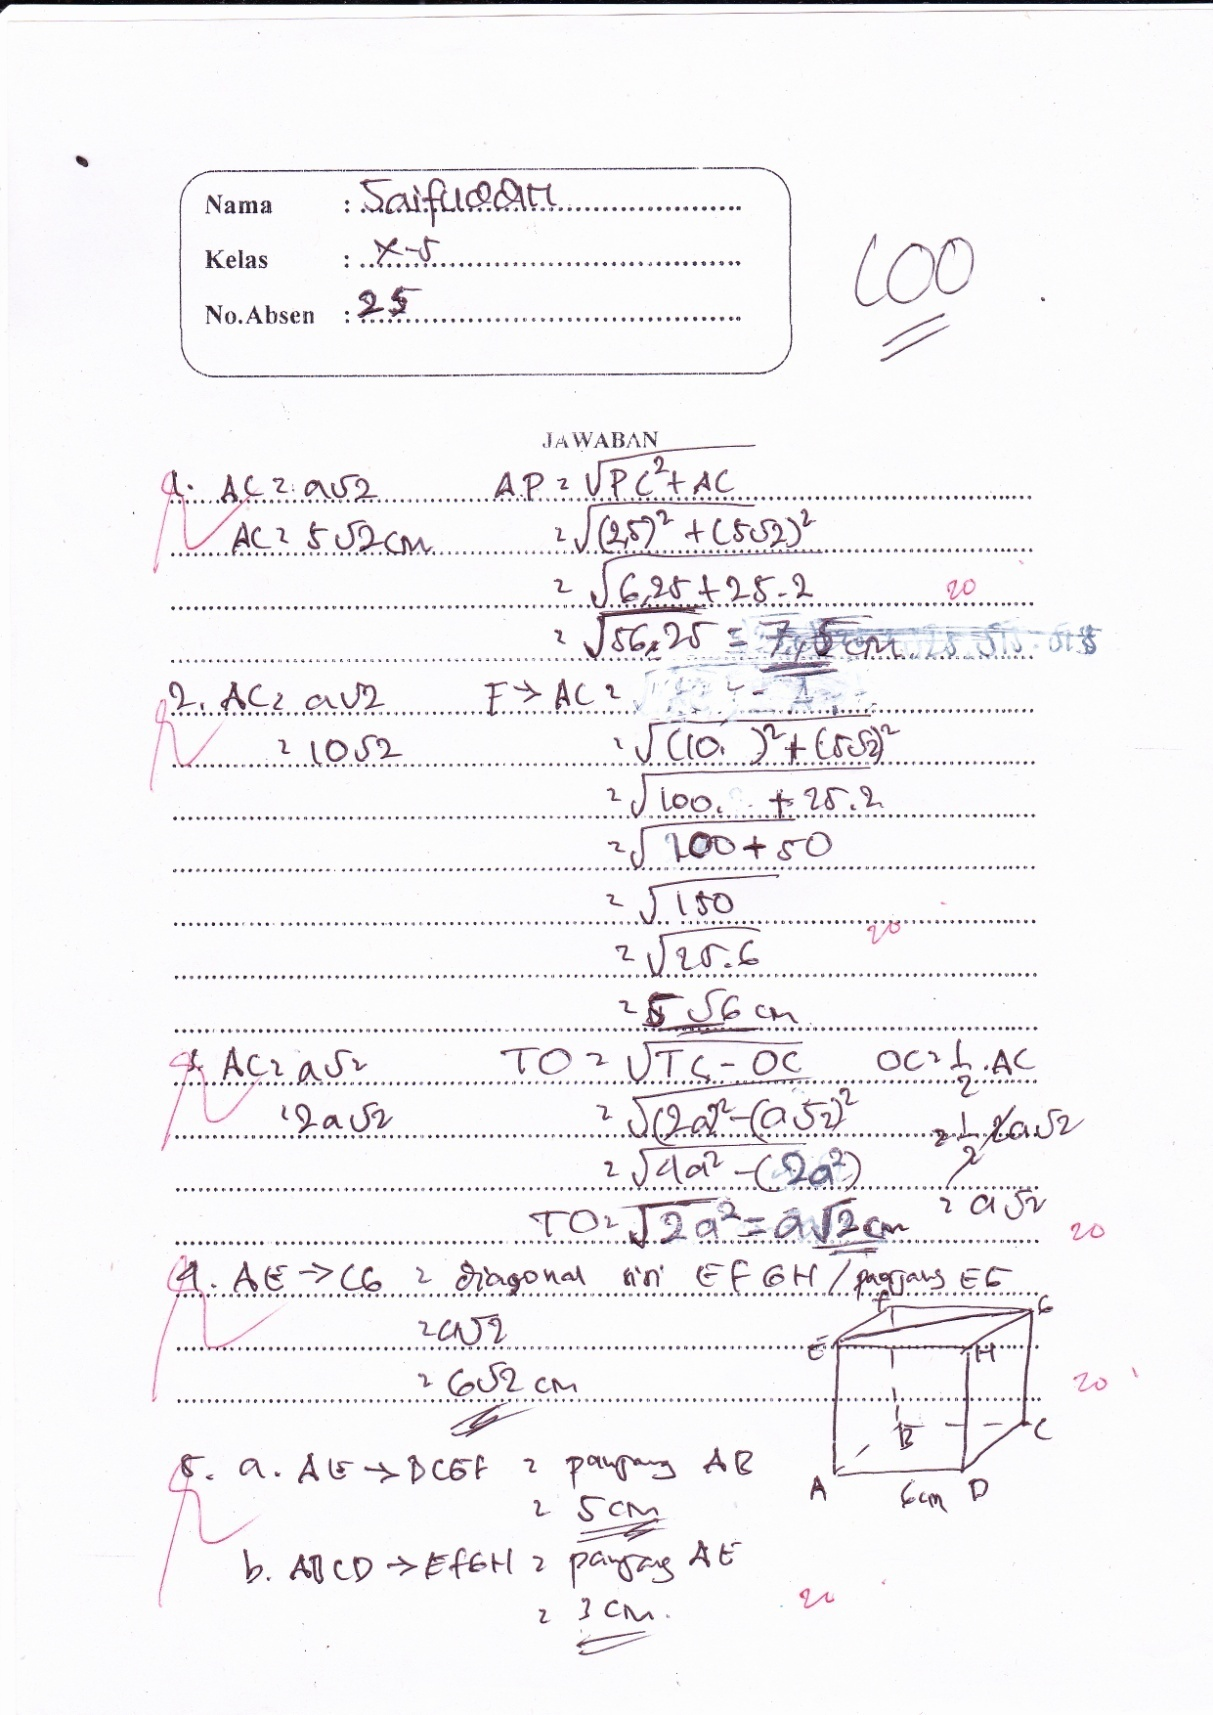 Nama : Saifuddin
Kelas : X-5
No.Absen : 25
100
JAWABAN
1. AC = a√2 AP = √PC²+AC
AC = 5√2 cm = √(2,5)² + (5√2)²
= √6,25 + 25.2 20
= √56,25 = 7,5 cm
2. AC = a√2 F → AC =
= 10√2 = √(10. )² + (5√2)²
= √100. + 25.2
= √100 + 50
= √150
= √25.6 20
= 5√6 cm
3. AC = a√2 TO = √TC - OC OC = 1/2 . AC
= 2a√2 = √(2a)² - (a√2)² = 1/2 2a√2
= √4a² - (2a²) = a√2
TO = √2a² = a√2 cm 20
4. AE → CG = diagonal sisi EFGH / panjang EG
= a√2
= 6√2 cm 20
F G
E H
B C
A 6cm D
5. a. AE → BCGF = panjang AB
= 5 cm
b. ABCD → EFGH = panjang AE
= 3 cm. 20